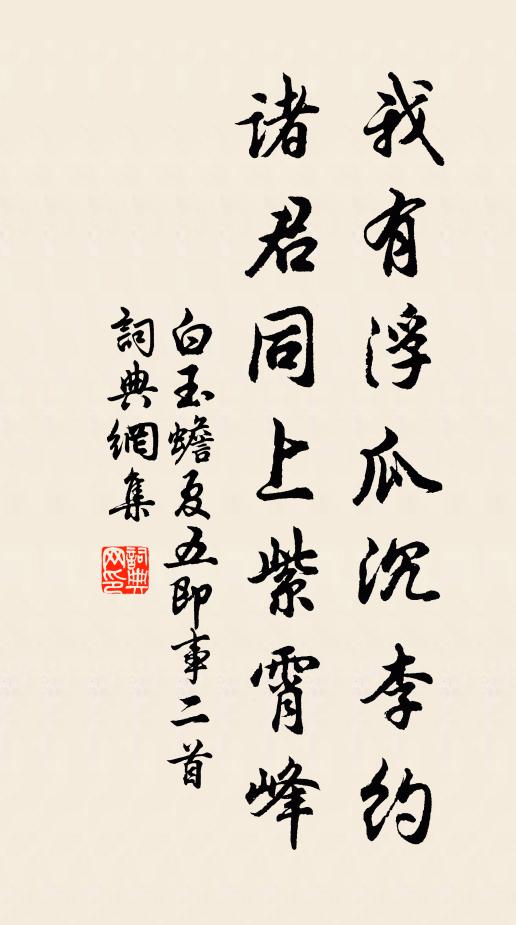 我有浮瓜沉李約
諸君同上紫霄峰
白玉蟾夏五即事二首
詞典網集
詞典網印